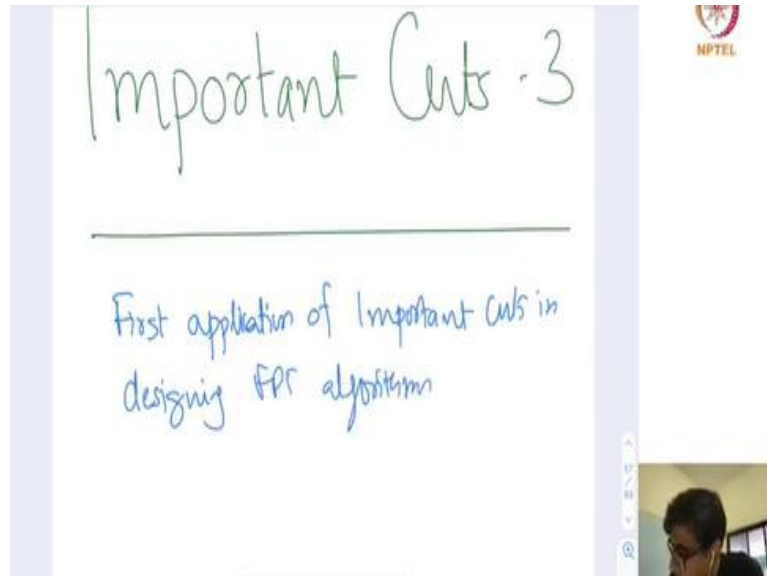 Important Cuts - 3
NPTEL
First application of Important cuts in
designing FPT algorithm